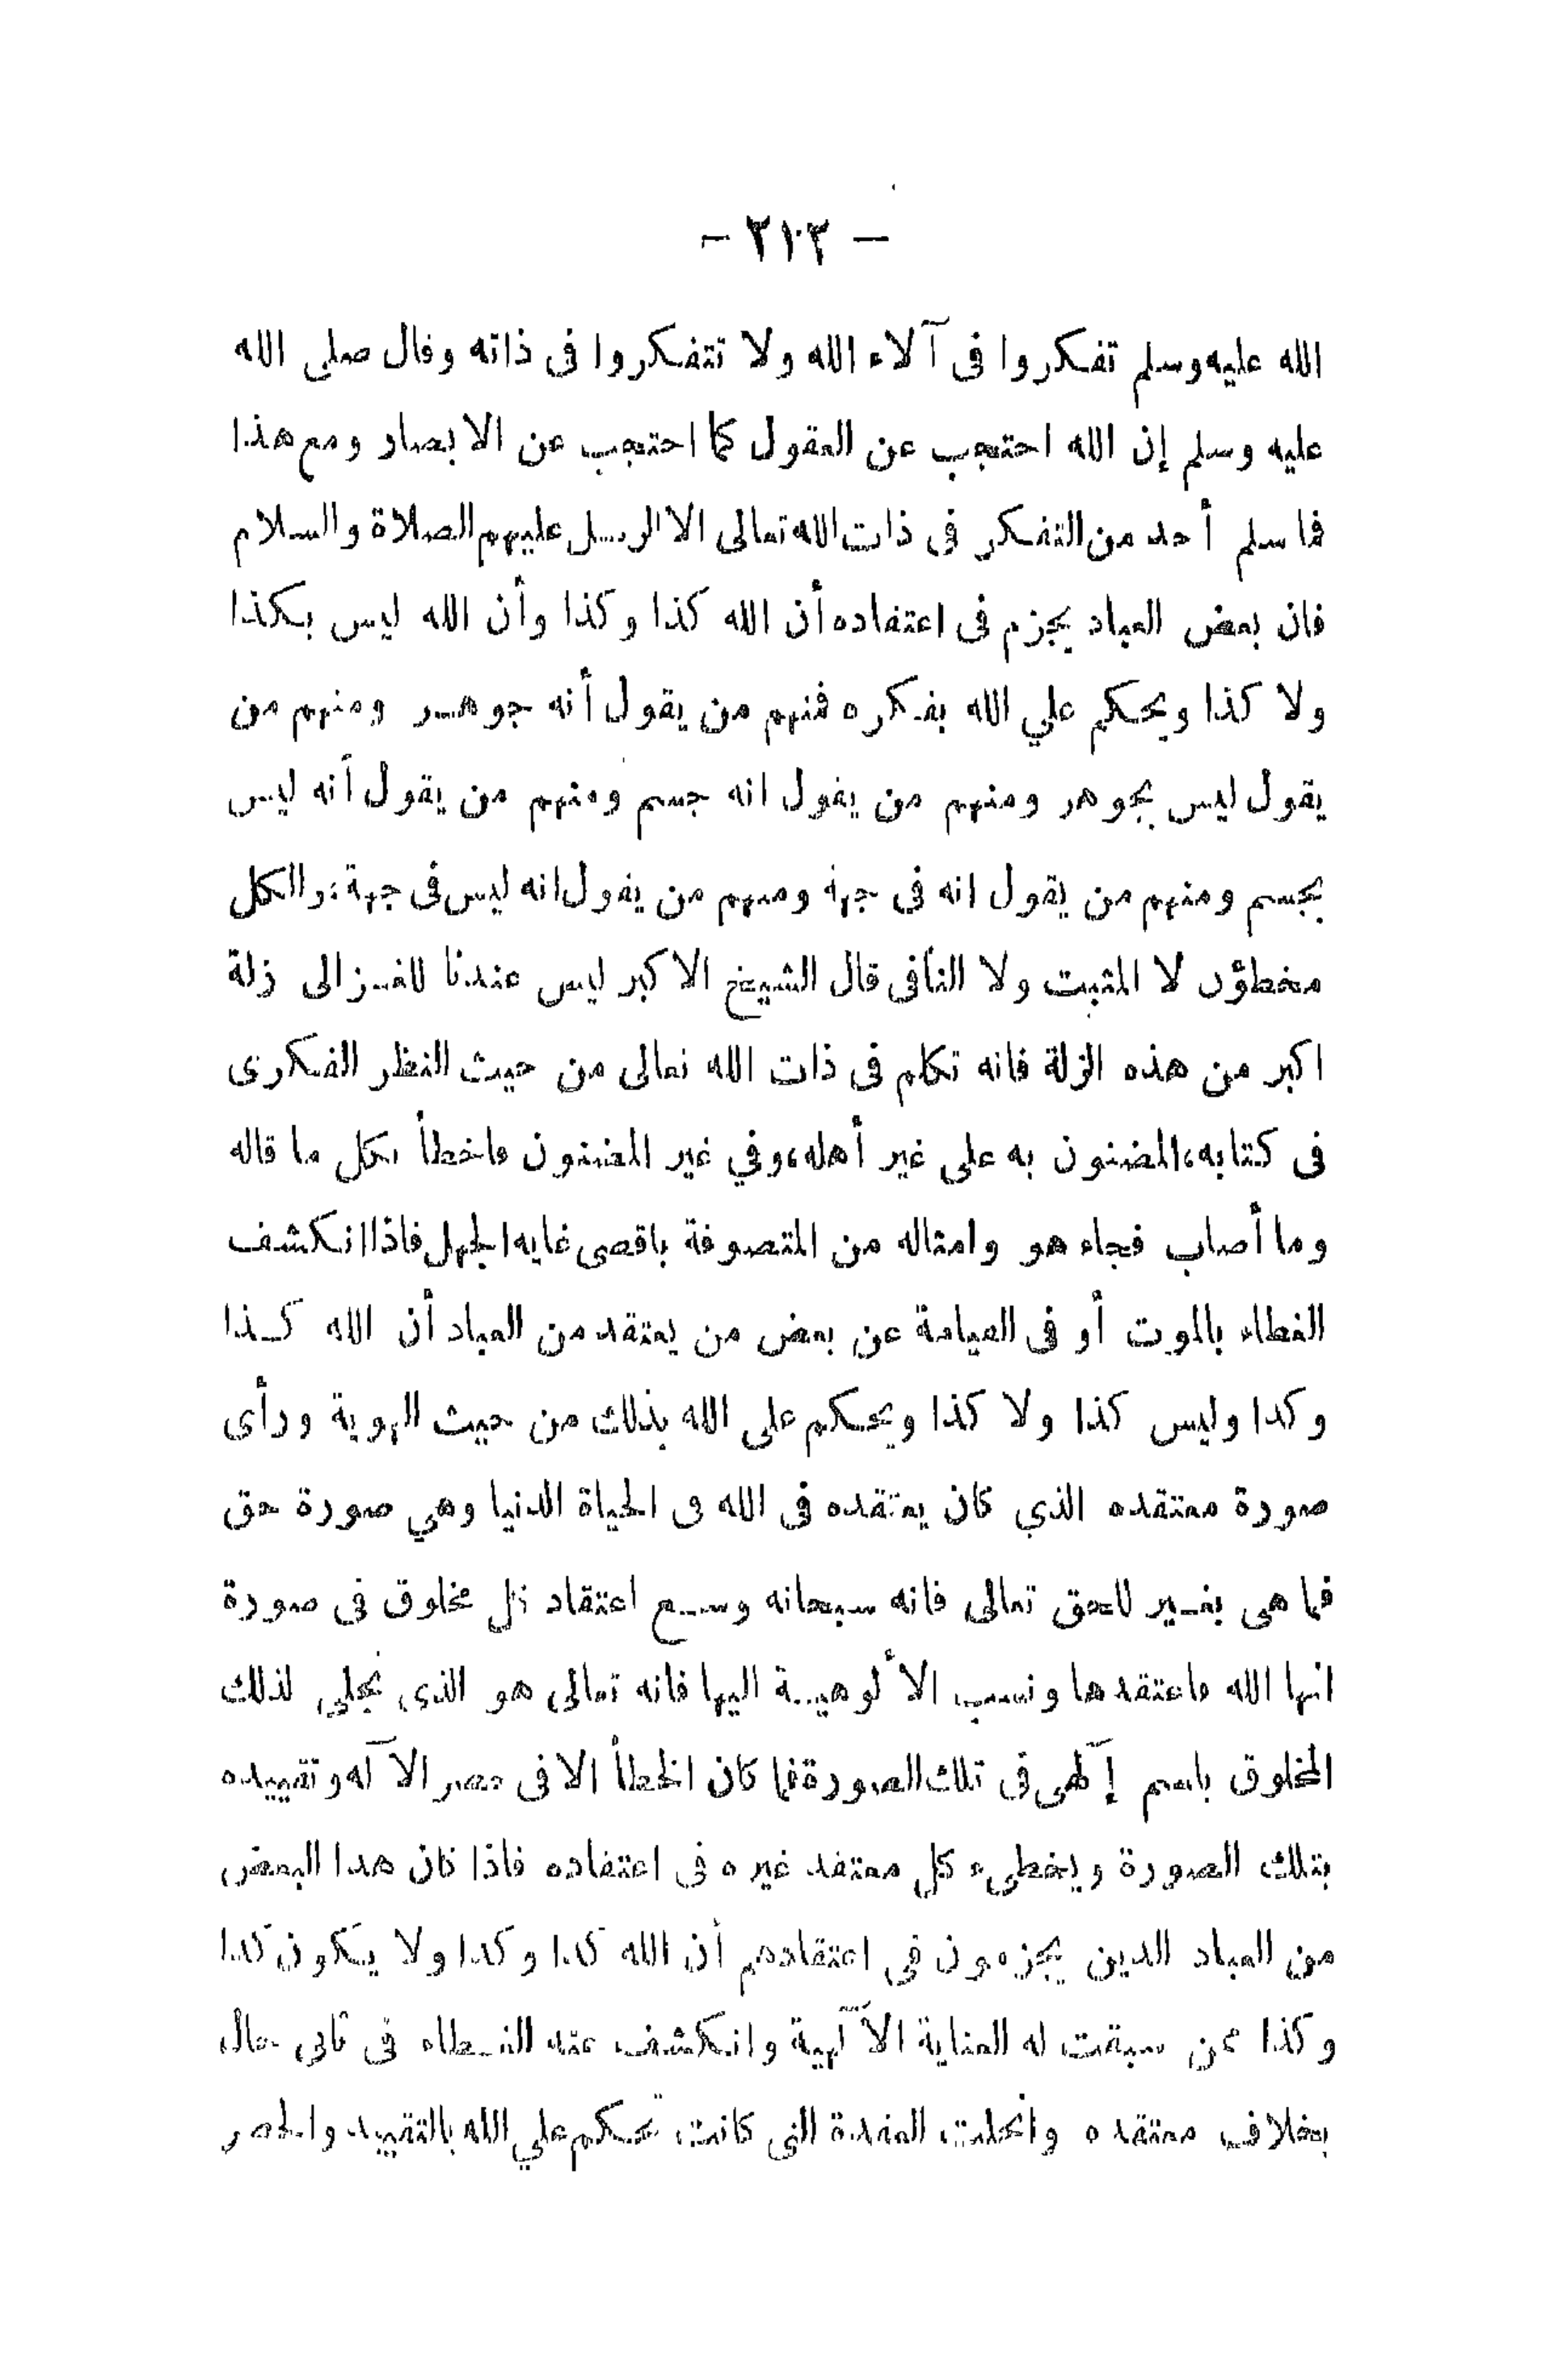 — ٢١٣ —
الله عليه وسلم تفكروا فى آلاء الله ولا تتفكروا فى ذاته وقال صلى الله
عليه وسلم إن الله احتجب عن العقول كما احتجب عن الابصار ومع هذا
فما سلم أحد من التفكر فى ذات الله تعالى الا الرسل عليهم الصلاة والسلام
فان بعض العباد يجزم فى اعتقاده أن الله كذا وكذا وأن الله ليس بكذا
ولا كذا ويحكم علي الله بفكره فمنهم من يقول أنه جوهر ومنهم من
يقول ليس بجوهر ومنهم من يقول انه جسم ومنهم من يقول أنه ليس
بجسم ومنهم من يقول انه فى جهة ومنهم من يقول انه ليس فى جهة، والكل
مخطؤن لا المثبت ولا النافى قال الشيخ الاكبر ليس عندنا للغزالى زلة
اكبر من هذه الزلة فانه تكلم فى ذات الله تعالى من حيث النظر الفكرى
فى كتابه، المضنون به على غير أهله، وفي غير المضنون فاخطأ بكل ما قاله
وما أصاب فجاء هو وامثاله من المتصوفة باقصى غايه الجهل فاذا انكشف
الغطاء بالموت أو فى القيامة عن بعض من يعتقد من العباد أن الله كذا
وكذا وليس كذا ولا كذا ويحكم على الله بذلك من حيث الهوية ورأى
صورة معتقده الذي كان يعتقده فى الله فى الحياة الدنيا وهي صورة حق
فما هى بغير للحق تعالى فانه سبحانه وسع اعتقاد كل مخلوق فى صورة
انها الله فاعتقدها ونسب الألوهية اليها فانه تعالى هو الذى تجلى لذلك
المخلوق باسم إآلهى فى تلك الصورة فما كان الخطأ الا فى حصر الآله وتقييده
بتلك الصورة ويخطىء كل معتقد غيره فى اعتقاده فاذا كان هذا البعض
من العباد الذين يجزمون فى اعتقادهم أن الله كذا وكذا ولا يكون كذا
وكذا ممن سبقت له العناية الآلهية وانكشف عنه الغطاء فى ثانى حال
بخلاف معتقده وانحلت العقدة التى كانت تحكم علي الله بالتقييد والحصر